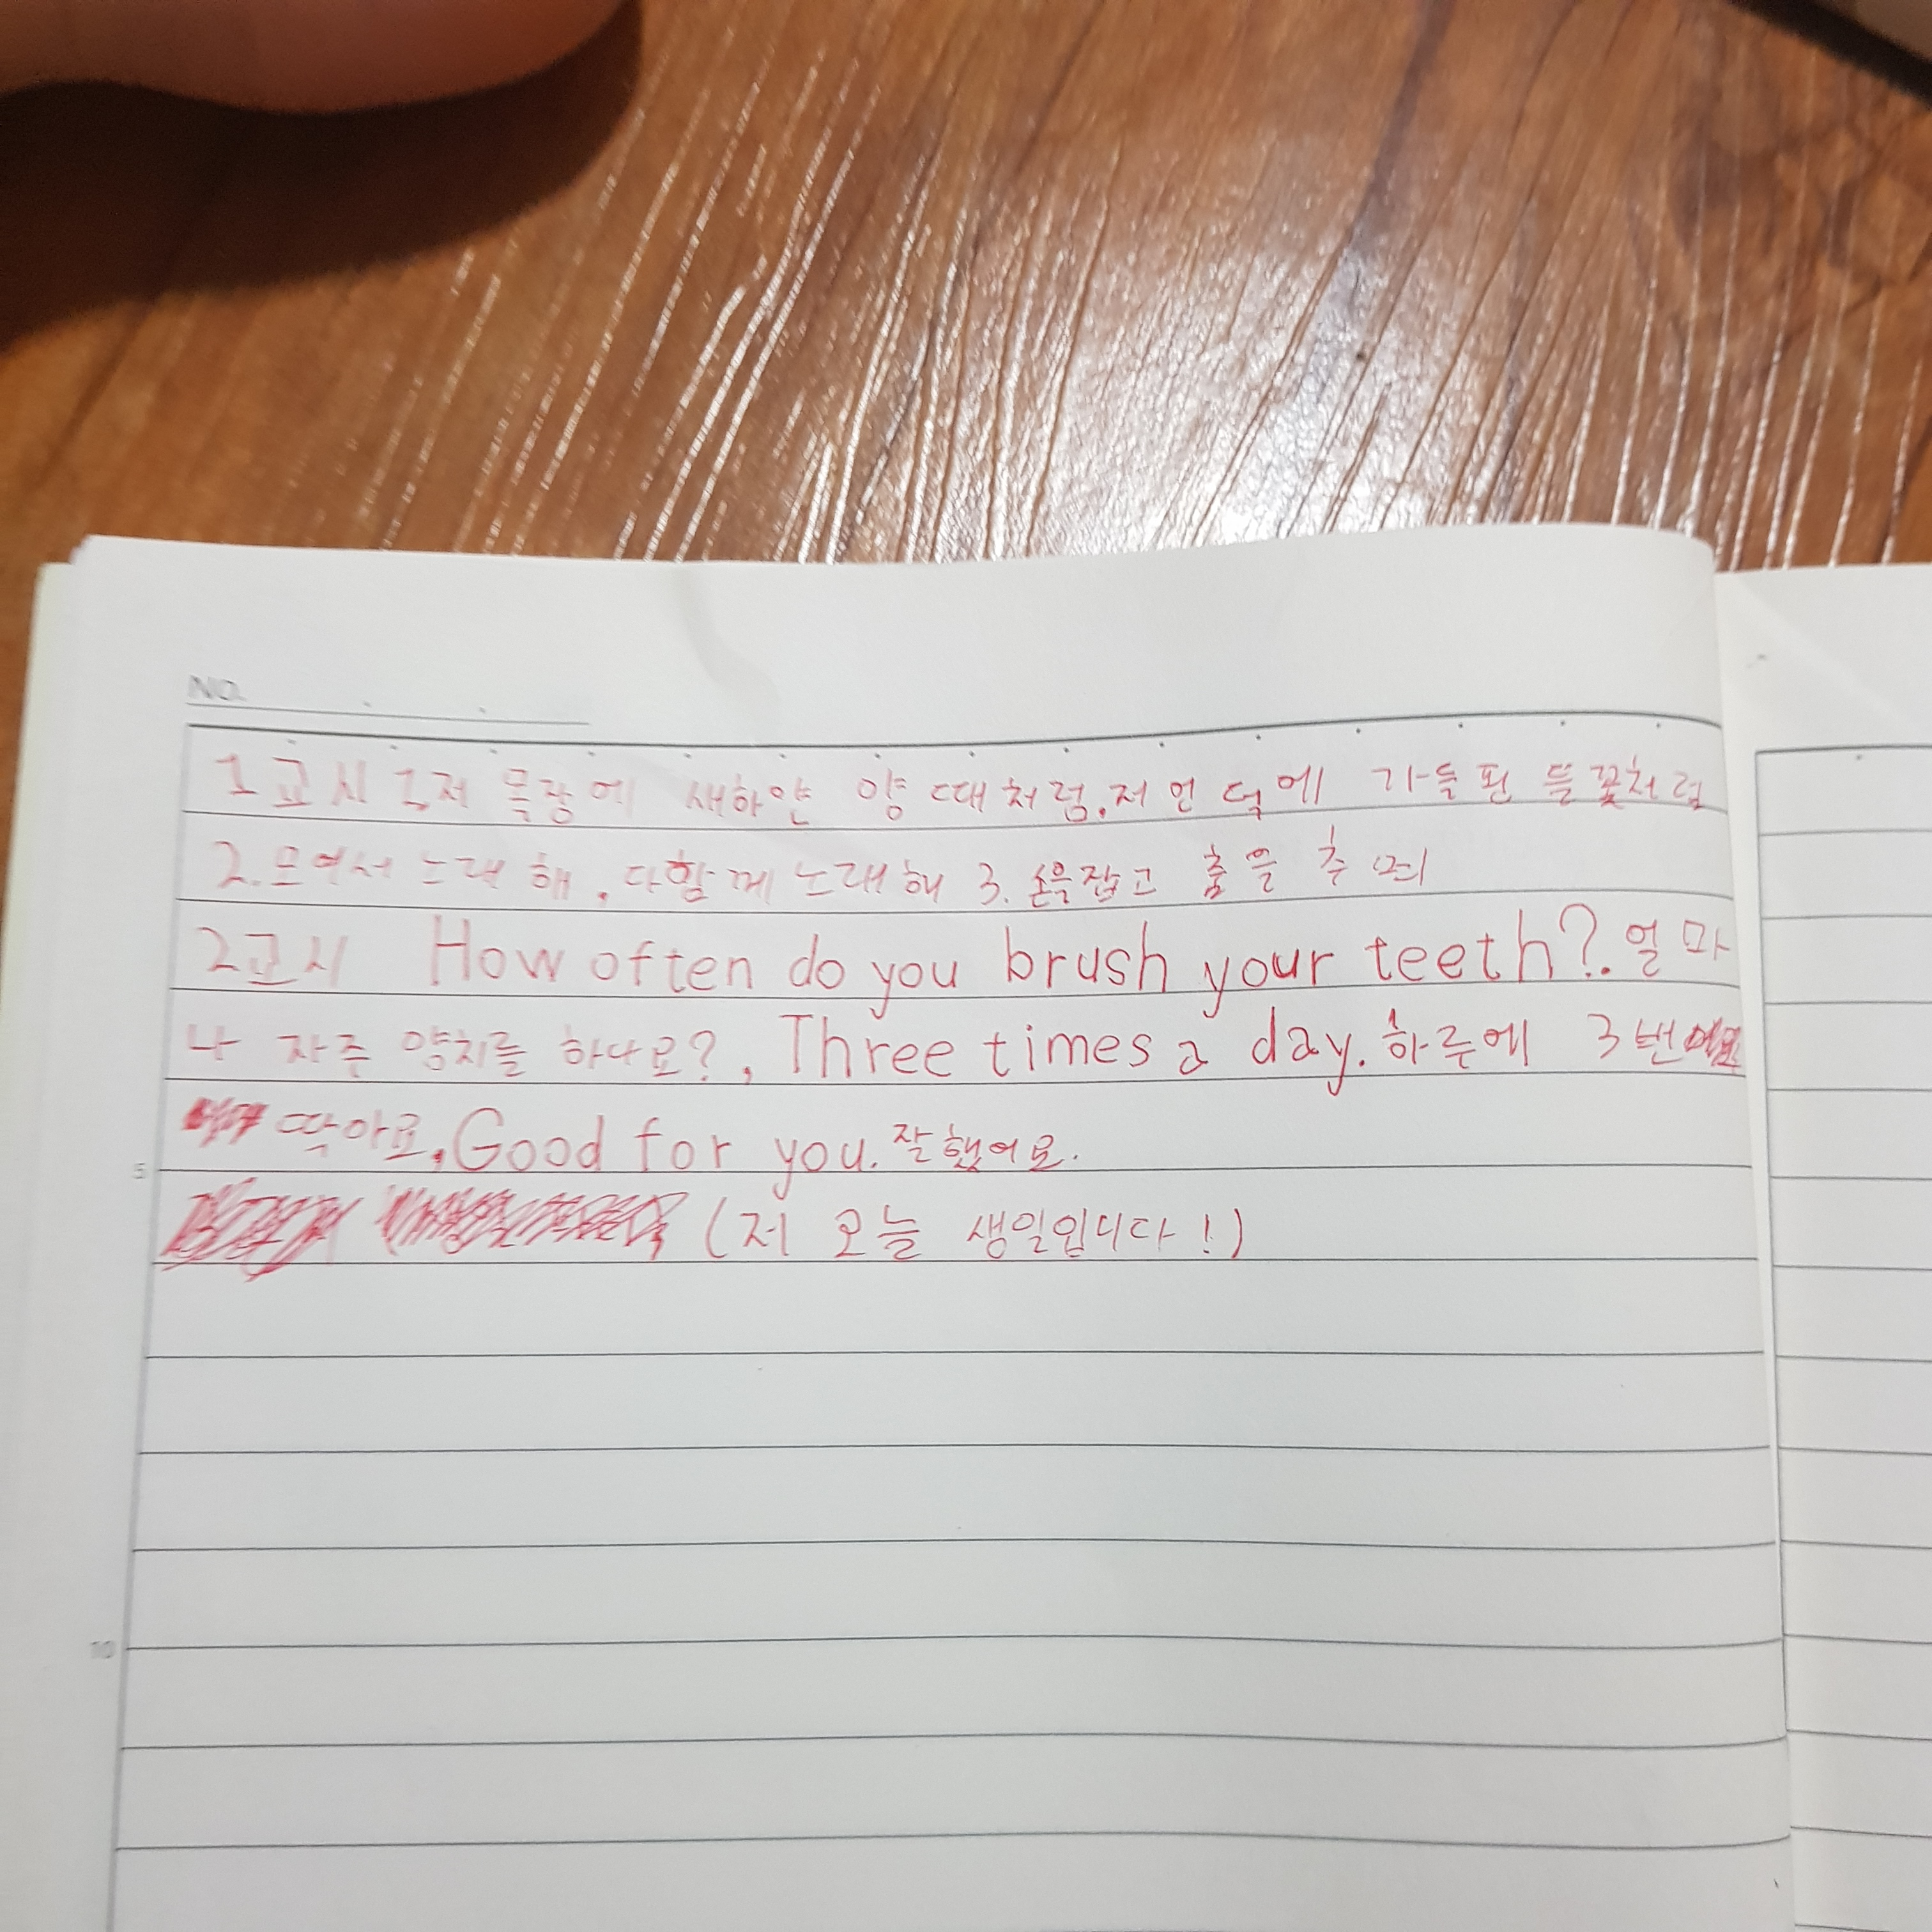 NO.
1교시 1.저 목장에 새하얀 양 떼처럼.저 언덕에 가득 핀 들꽃처럼
2.모여서 노래해.다함께 노래해 3.손을잡고 춤을 추며
2교시 How often do you brush your teeth?.얼마
나 자주 양치를 하나요?, Three times a day.하루에 3번
딱아요,Good for you.잘했어요.
5
(저 오늘 생일입니다!)
10